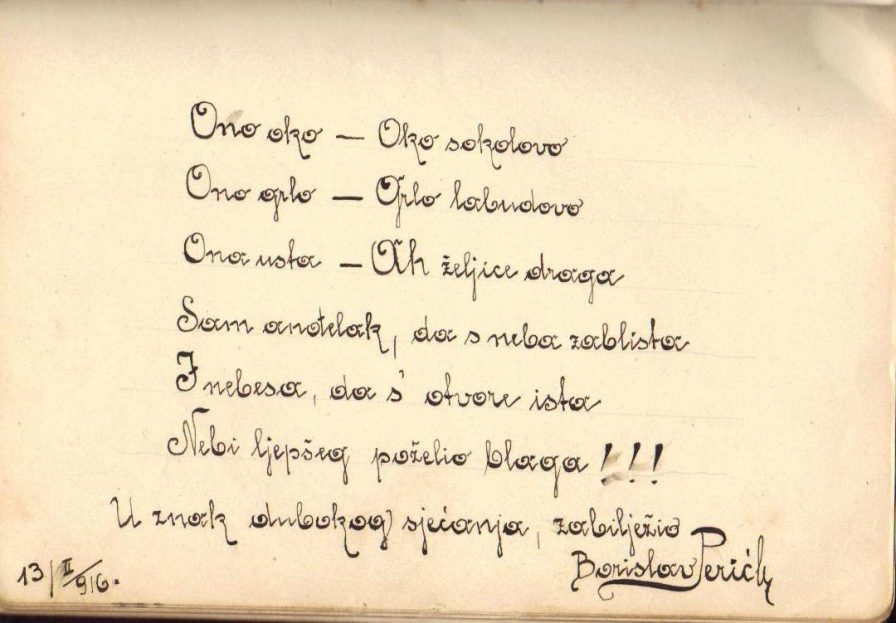 Ono oko — Oko sokolovo
Ono grlo — Grlo labudovo
Ona usta — Ah željice draga
Sam anđelak, da s neba zablista
I nebesa, da s' otvore ista
Nebi ljepšeg poželio blaga !!!
U znak dubokog sjećanja, zabilježio
Borislav Perić
13/II 916.